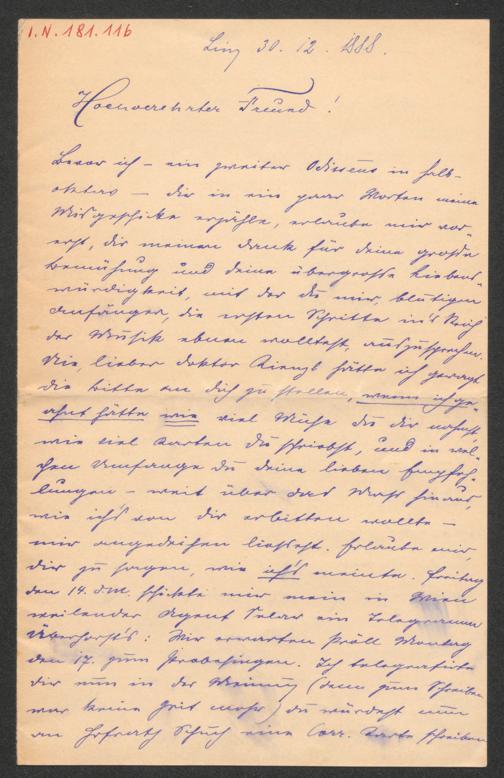 I.N. 181.116
Linz 30. 12. 1888.
Hochverehrter Freund!
Bevor ich – ein zweiter Odisseus in halb-
oktavo – dir in ein paar Worten meine
Misgeschicke erzähle, erlaube mir vor-
erst, dir meinen Dank für deine große
Bemühung und deine übergroße Liebens-
würdigkeit, mit der du mir, blutigen
Anfänger, die ersten Schritte in's Reich
der Musik ebnen wolltest, auszusprechen.
Nie, lieber Doktor Kienzl hätte ich gewagt
die Bitte an dich zu stellen, wenn ich ge-
ahnt hätte wie viel Mühe du dir nahmst
wie viel Karten du schriebst, und in wel-
chen Umfange du deine lieben Empfeh-
lungen – weit über das Maß hinaus,
wie ich's von dir erbitten wollte –
mir angedeihen ließest. Erlaube mir,
dir zu sagen, wie ich's meinte. Freitag
den 14. d.M. schickte mir mein in Wien
weilender Agent ein Telegramm
: Wir erwarten Pröll Montag
den 17. zum Probesingen. Ich telegrafirte
dir nun in der Meinung (denn zum Schreiben
war keine Zeit mehr) du würdest nun
an Hofrath Schuch eine Corr. Karte schreiben